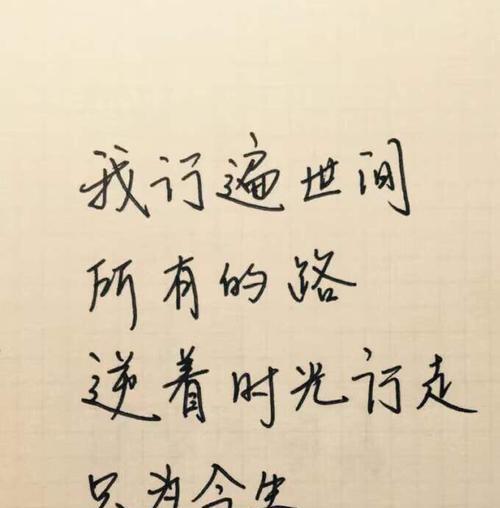 我行遍世间
所有的路
逆着时光行走
只为今生